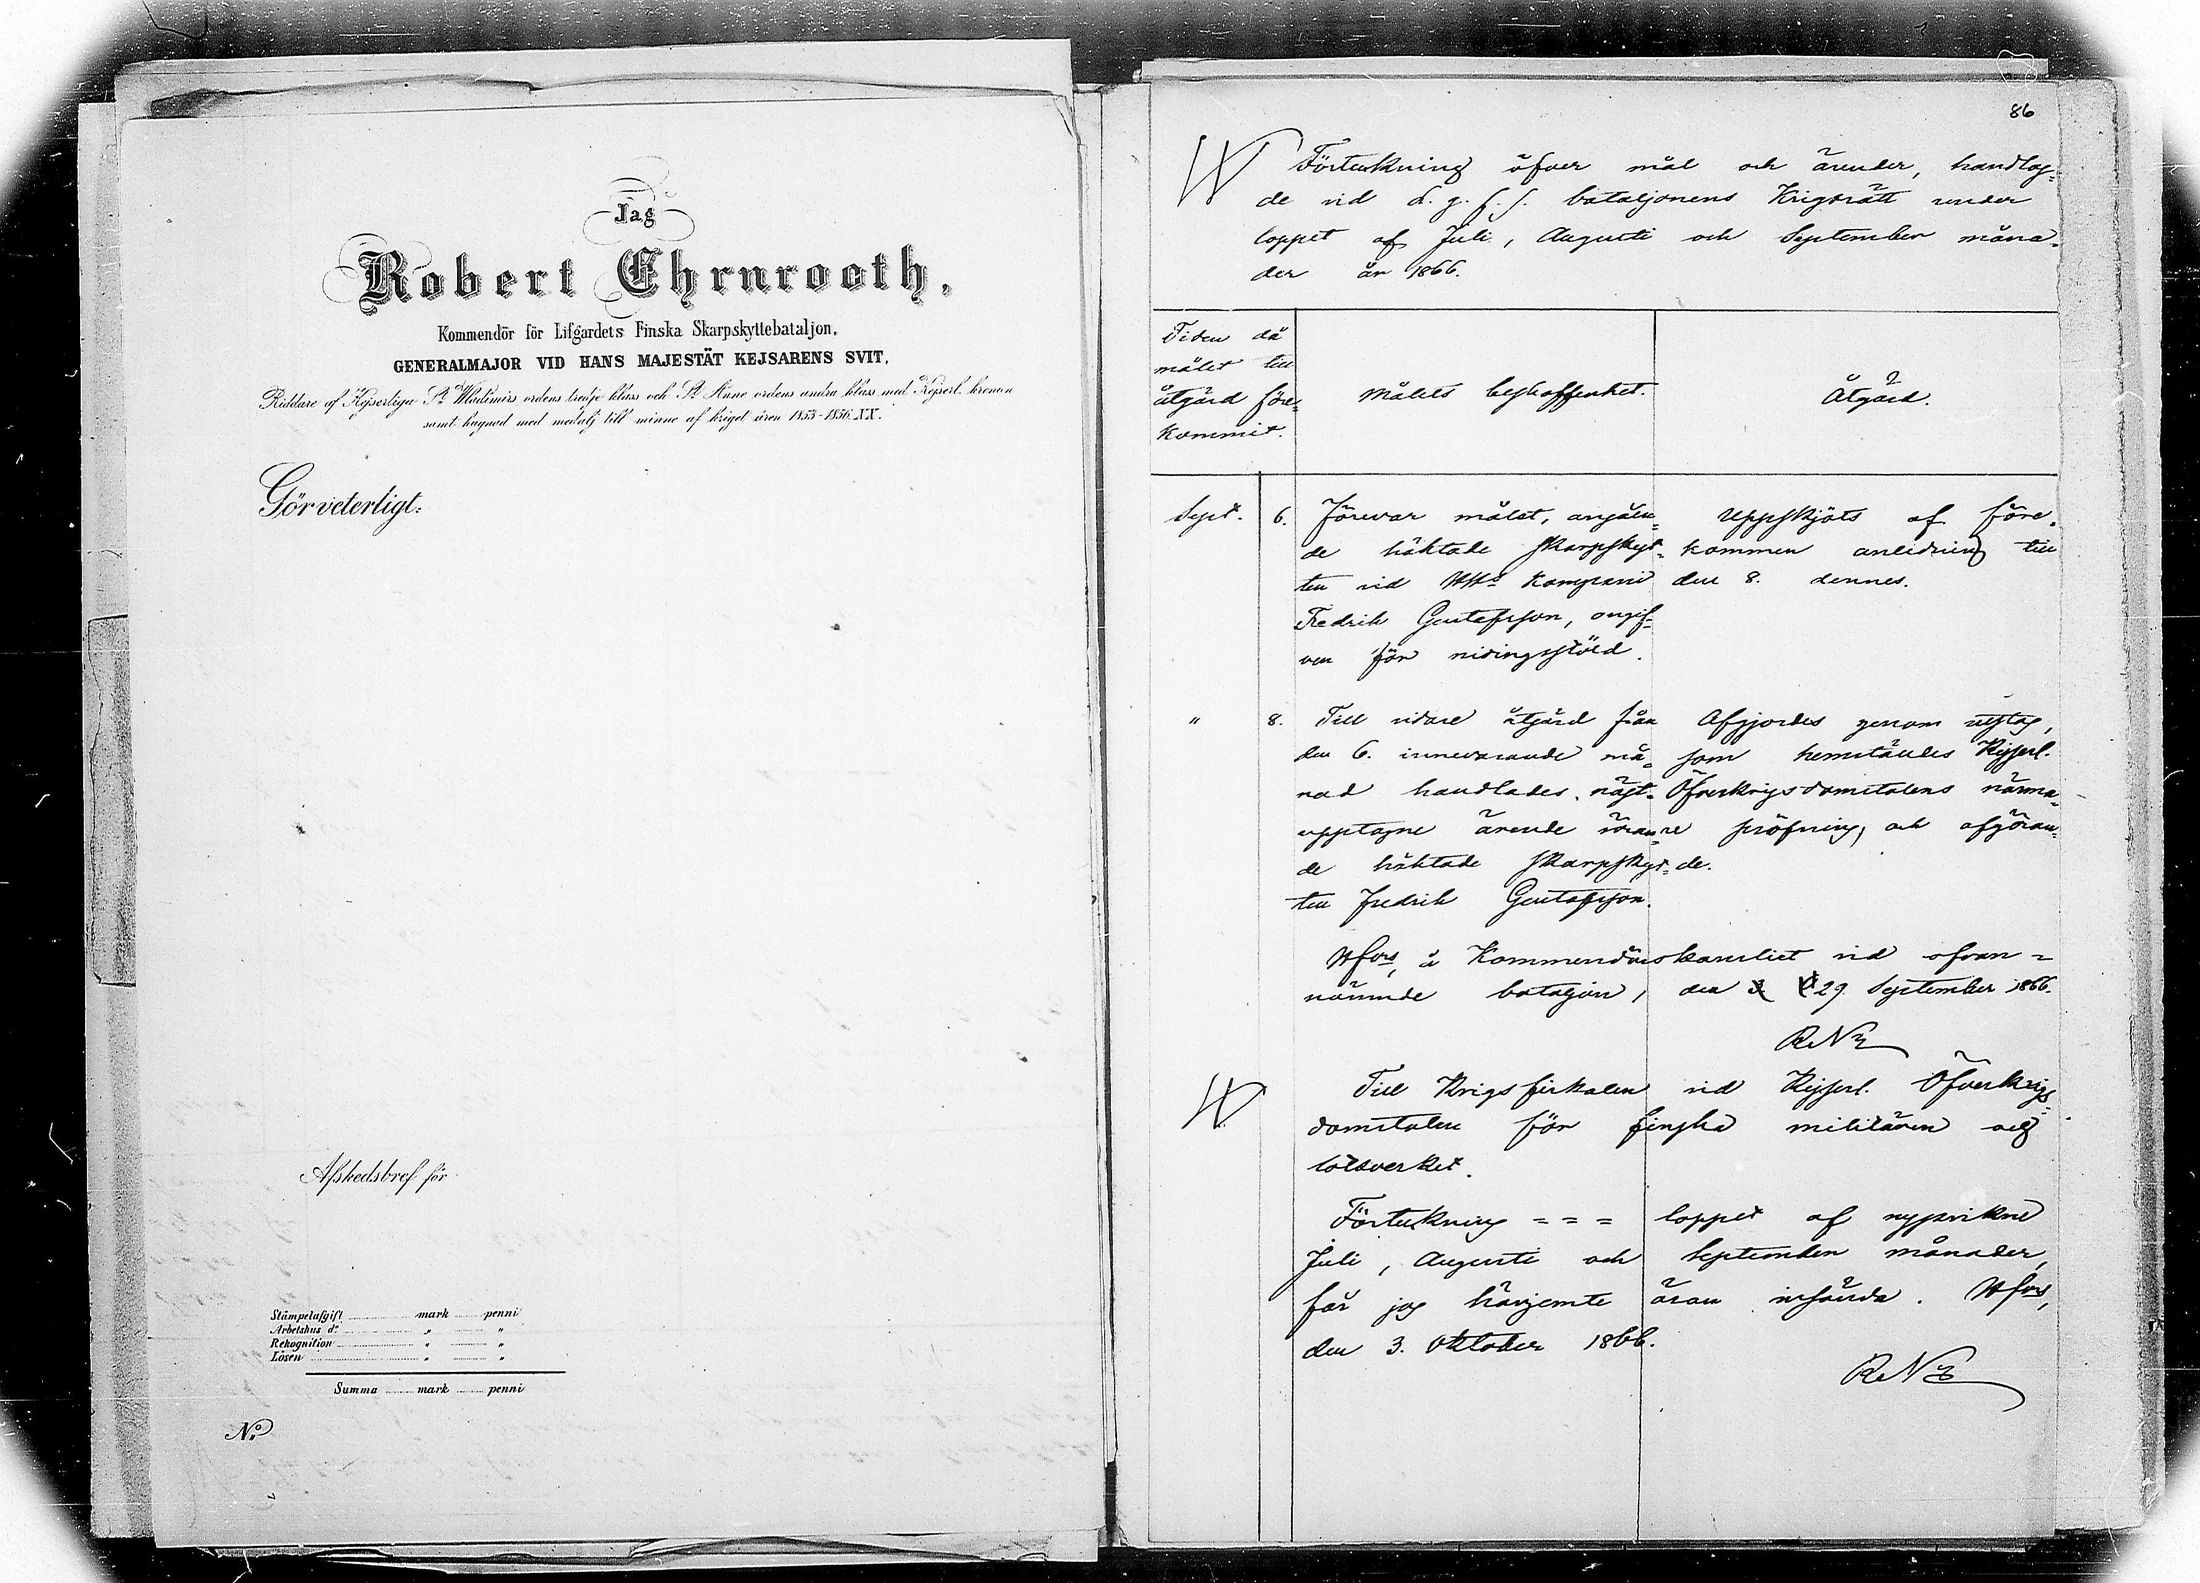 Jag
Robert Ehrnrooth,
Kommendör för Lifgardets Finska Skarpskyttebataljon,
GENERALMAJOR VID HANS MAJESTÄT KEJSARENS SVIT,
Riddare af Kejserliga St Wladimirs ordens tredje klass och St Anne ordens andra klass med Kejserl. kronan
samt hugnad med medalj till minne af kriget åren 1853-1856. XX.
Gör veterligt:
Afskedsbref för
Stämpelafgift mark penni
Arbetshus do " "
Rekognition " "
Lösen " "
Summa mark penni
No
86
Förteckning öfver mål och ärender, handlag-
de vid L. g. f. s. bataljonens Krigsrätt under
loppet af Juli, Augusti och September måna-
der år 1866.
Tiden då
målet till
åtgärd före-
kommit.
Målets beskaffenhet.
Åtgärd.
Sept. 6. Förevar målet, angåen-
de häktade skarpskyt-
ten vid Kompani
Fredrik Gustafsson, angif-
ven för nidingsstöld.
Uppskjöts af före-
kommen anledning till
den 8. dennes.
" 8. Till vidare åtgärd från
den 6. innevarande må-
nad handlades näst-
upptagne ärende röran-
de häktade skarpskyt-
ten Fredrik Gustafsson.
Afgjordes genom utslag,
som hemställdes Kejserl.
Öfverkrigsdomstolens närma-
re pröfning och afgöran-
de.
Hfors, å Kommendörskansliet vid ofvan-
nämnde bataljon, den 29 September 1866.
RNE
Till Krigsfiskalen vid Kejserl. Öfverkrigs-
domstolen för finska militären och
lotsverket.
Förteckning = = = loppet af nyssvikne
Juli, Augusti och September månader,
får jag härjemte äran insända. Hfors,
den 3. Oktober 1866.
RNE